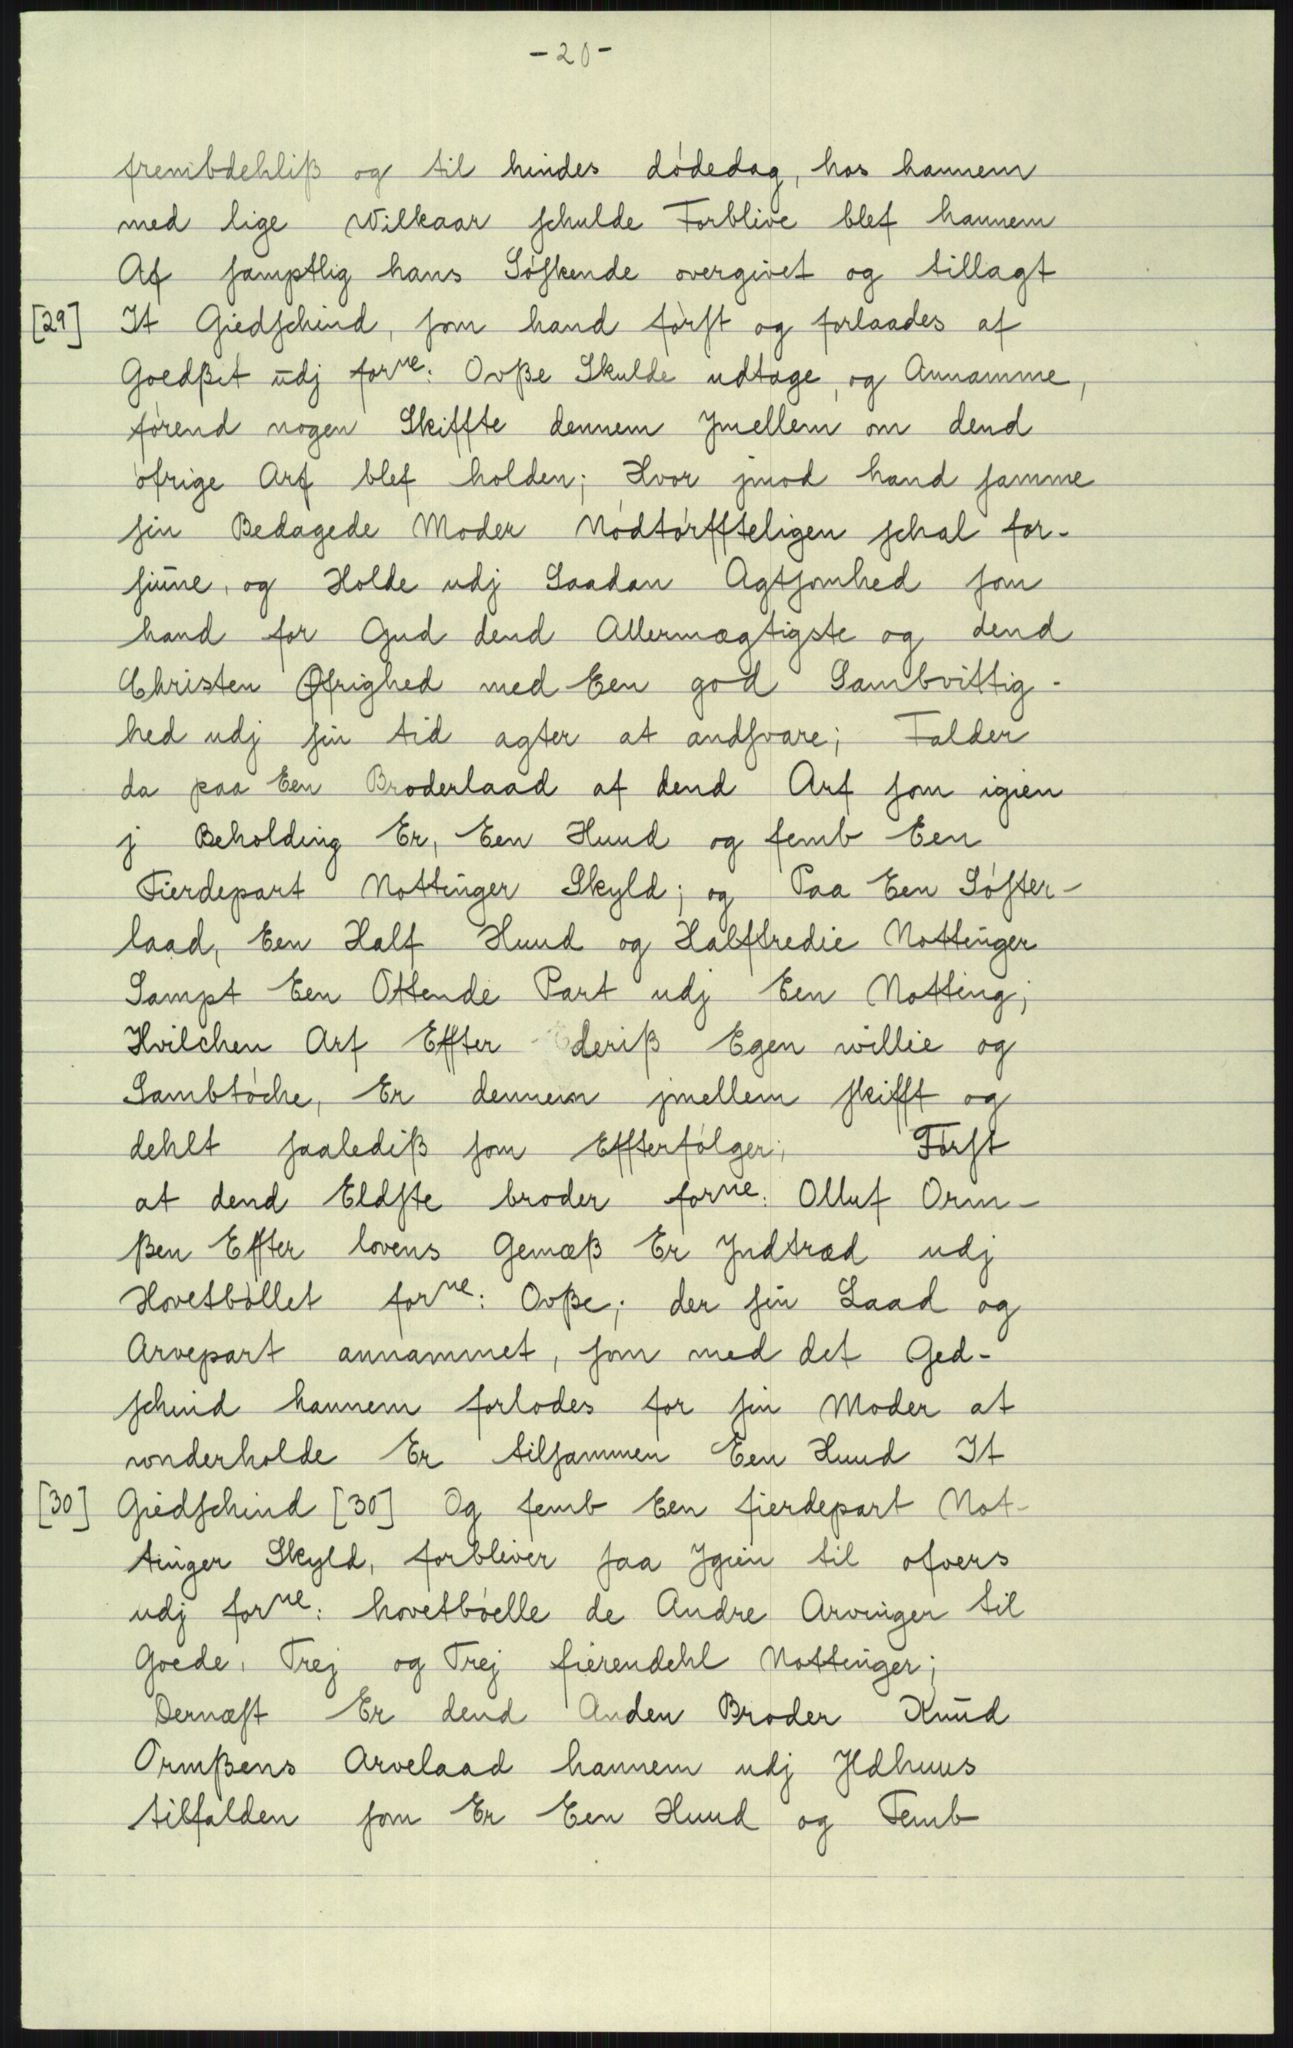 - 20 -
frembdehliß og til hindes dódedag, hos hannem
med lige Wilkaar schulde Forblive blef hannem
Af samptlig hans Sóskende overgivet og tillagt
[29] It Giedschind, som hand fórst og forlaades af
Goedßet ūdj forne: Ovße Skulde udtage, og Annamme,
fórend nogen Skiffte dennem Jmellem om dend
ófrige Arf blef holden; Hvor jmod hand samme
sin Bedagede Moder Nódtórffteligen schal for-
siūne, og Holde udj Saadan Agtsomhed som
hand for Gud dend Allermægtigste og dend
Christen Øfrighed med Een god Sambvittig-
hed udj sin tid agter at andsvare; Falder
da paa Een Broderlaad af dend Arf som igien
j Beholding Er, Een Huud og femb Een
Fierdepart Nottinger Skyld; og Paa Een Sóster-
laad, Een Half Huud og Halftredie Nottinger
Sampt Een Ottende Part udj Een Notting;
Hvilchen Arf Effter Ederiß Egen willie og
Sambtóche, Er dennem jmellem skifft og
dehlt saalediß som Effterfólger; Fórst
at dend Eldste broder forne: Olluf Orm-
ßen Effter lovens Gemæß Er Jndtræd udj
Hovetbóllet forne: Ovße; der sin Laad og
Arvepart annammet, som med det Ged-
schind hannem forlodes for sin Moder at
wnderholde Er tilsammen Een Huud It
[30] Giedschind [30] Og femb Een fierdepart Not-
tinger Skyld, forbliver saa Jgien til ofvers
udj forne: hovetbóelle de Andre Arvinger til
Goede, Trej og Trej fierendehl Nottinger;
Dernæst Er dend Anden Broder Knūd
Ormßens Arvelaad hannem udj Jldhuus
tilfalden som Er Een Huud og Femb